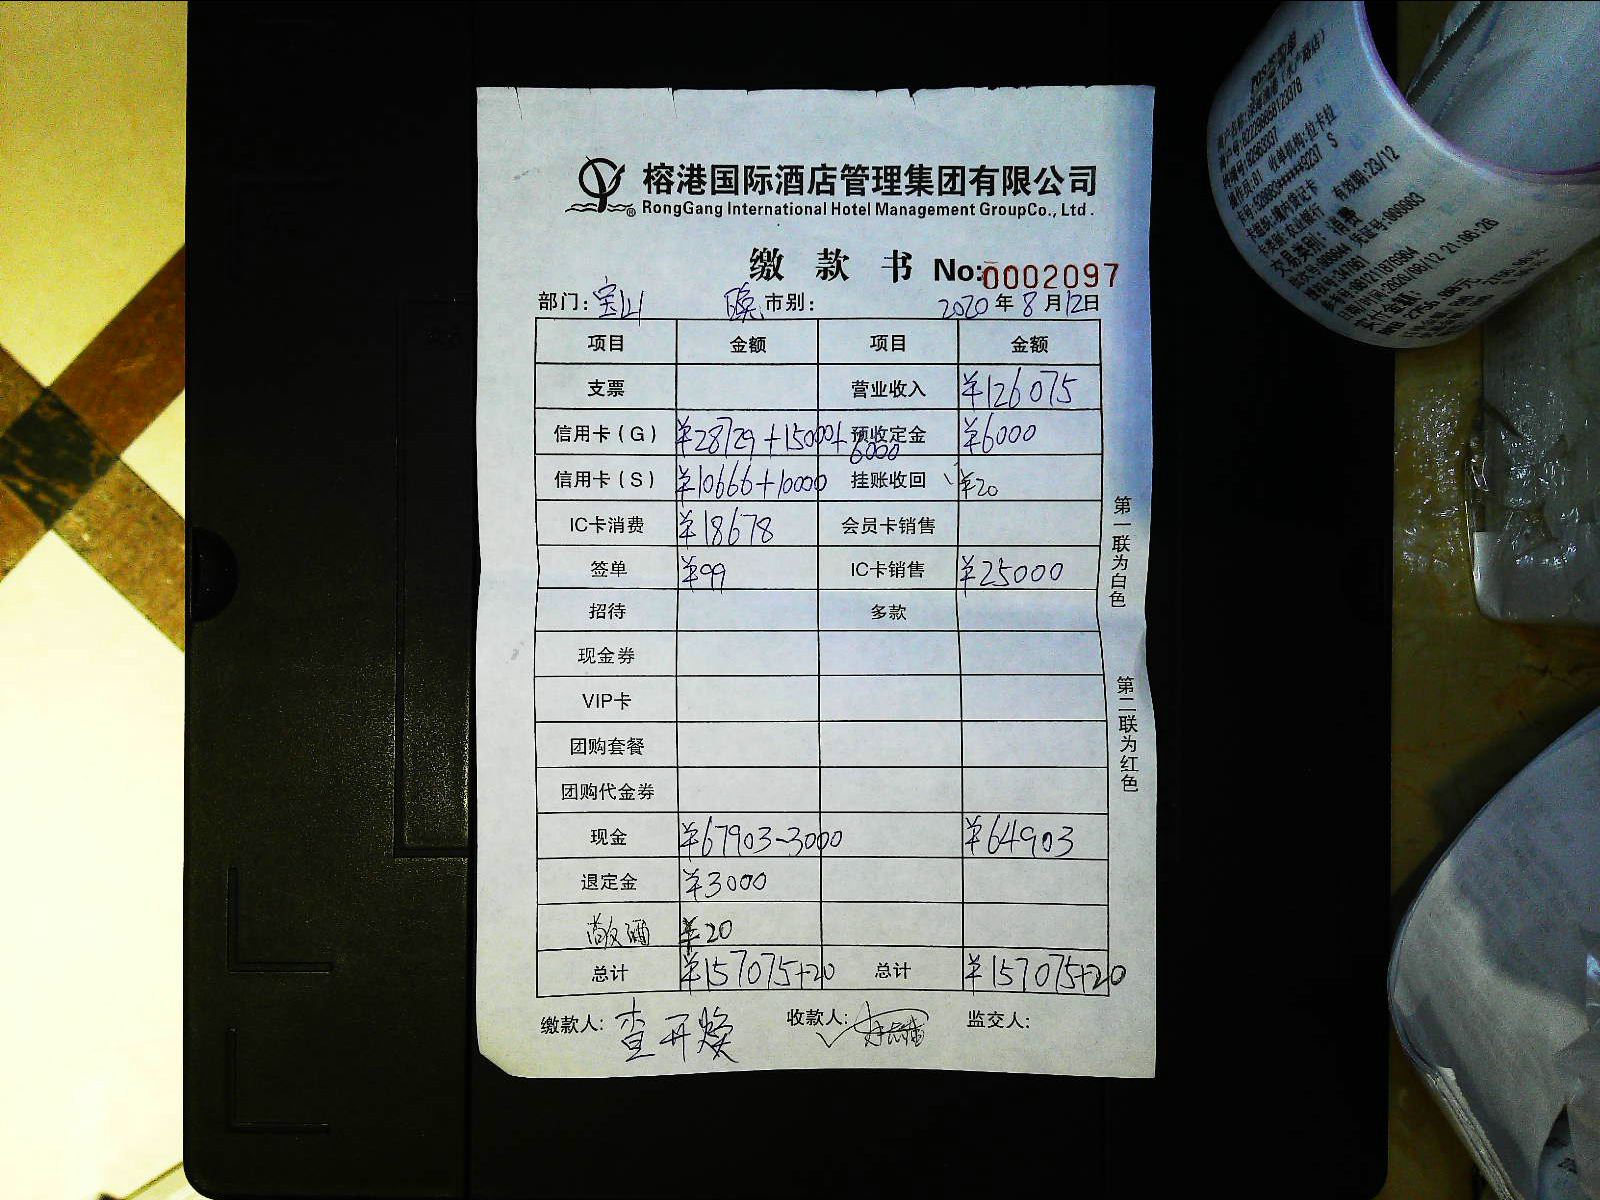 榕港国际酒店管理集团有限公司
RongGang International Hotel Management GroupCo., Ltd.
缴 款 书 No:0002097
部门:宝山 市别: 2020年8月12日
项目 金额 项目 金额
支票 营业收入 ¥126075
信用卡(G) ¥28729+15000+6000 预收定金 ¥6000
信用卡(S) ¥10666+10000 挂账收回 ¥20
IC卡消费 ¥18678 会员卡销售
签单 ¥99 IC卡销售 ¥25000
招待 多款
现金券
VIP卡
团购套餐
团购代金券
现金 ¥67903-3000 ¥64903
退定金 ¥3000
酒 ¥20
总计 ¥157075+20 总计 ¥157075+20
缴款人: 查开焕 收款人: 监交人:
第一联为白色
第二联为红色
收单机构:拉卡拉
有效期:23/12
交易类别: 消费
凭证号:000603
2020/08/12 21:06:26